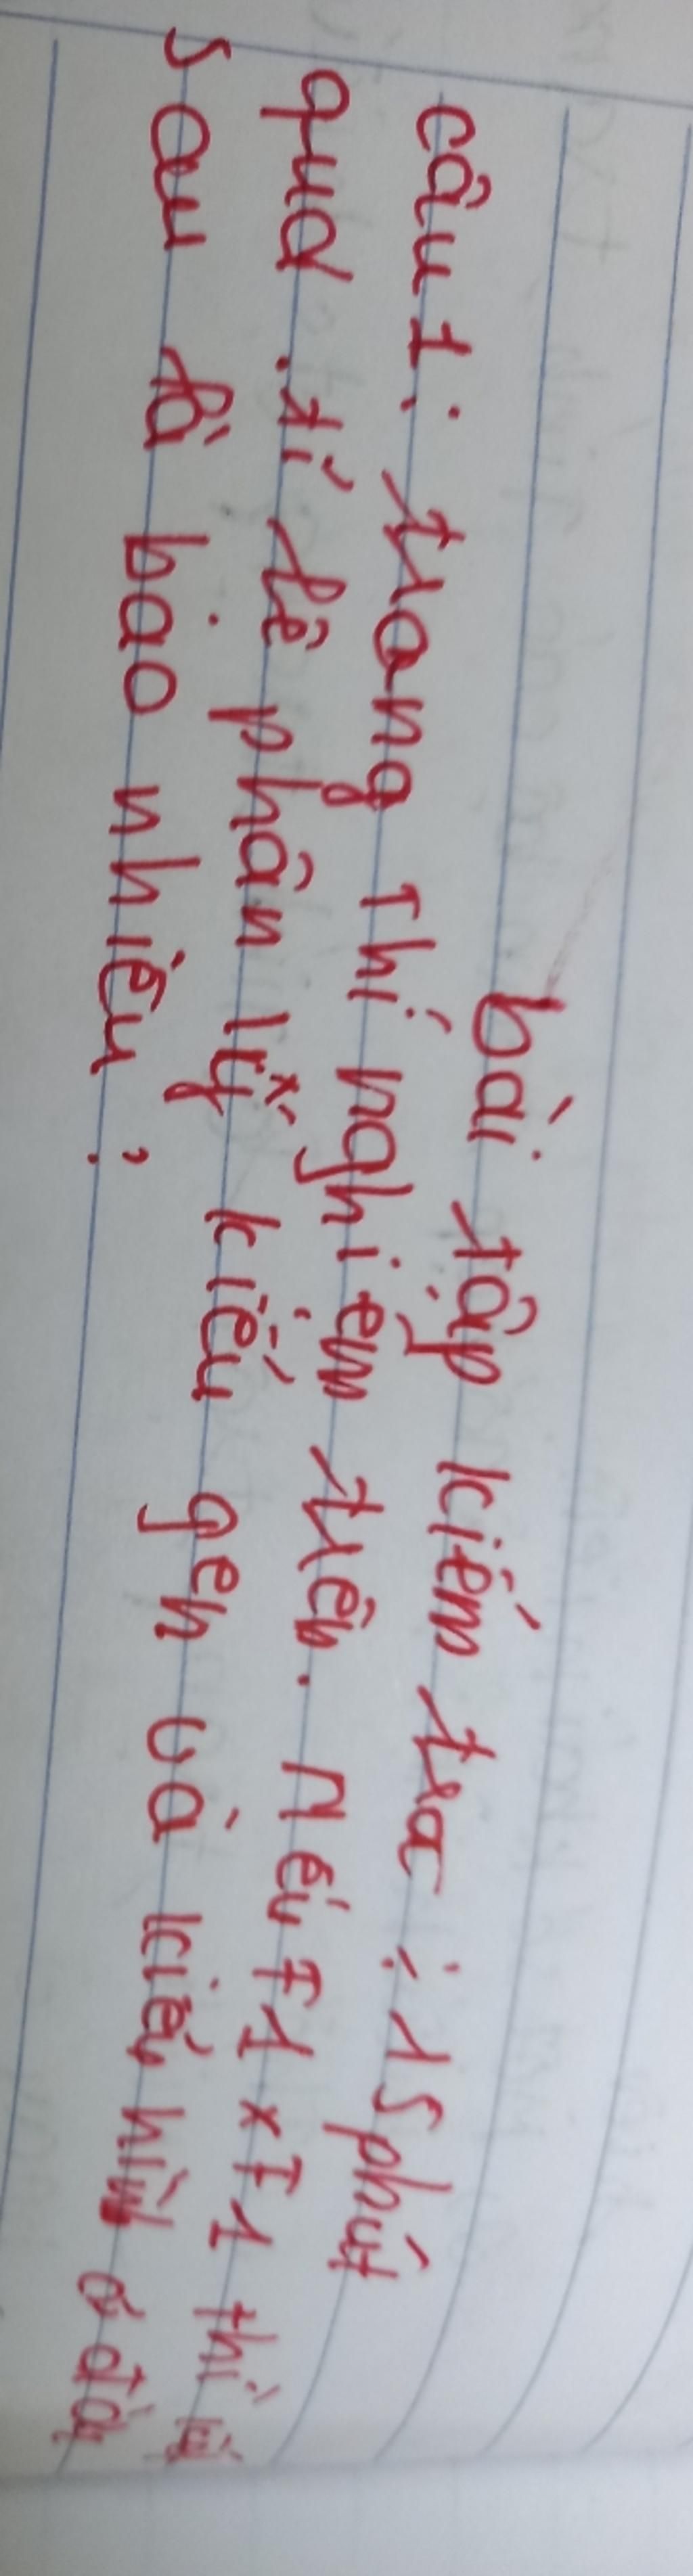 bài tập kiểm tra : 15 phút
câu 1: trong Thí nghiệm trên. Nếu F1 x F1 thì kết
quả tỉ lệ phân lỹ kiểu gen và kiểu hình ở đời
sau là bao nhiêu :